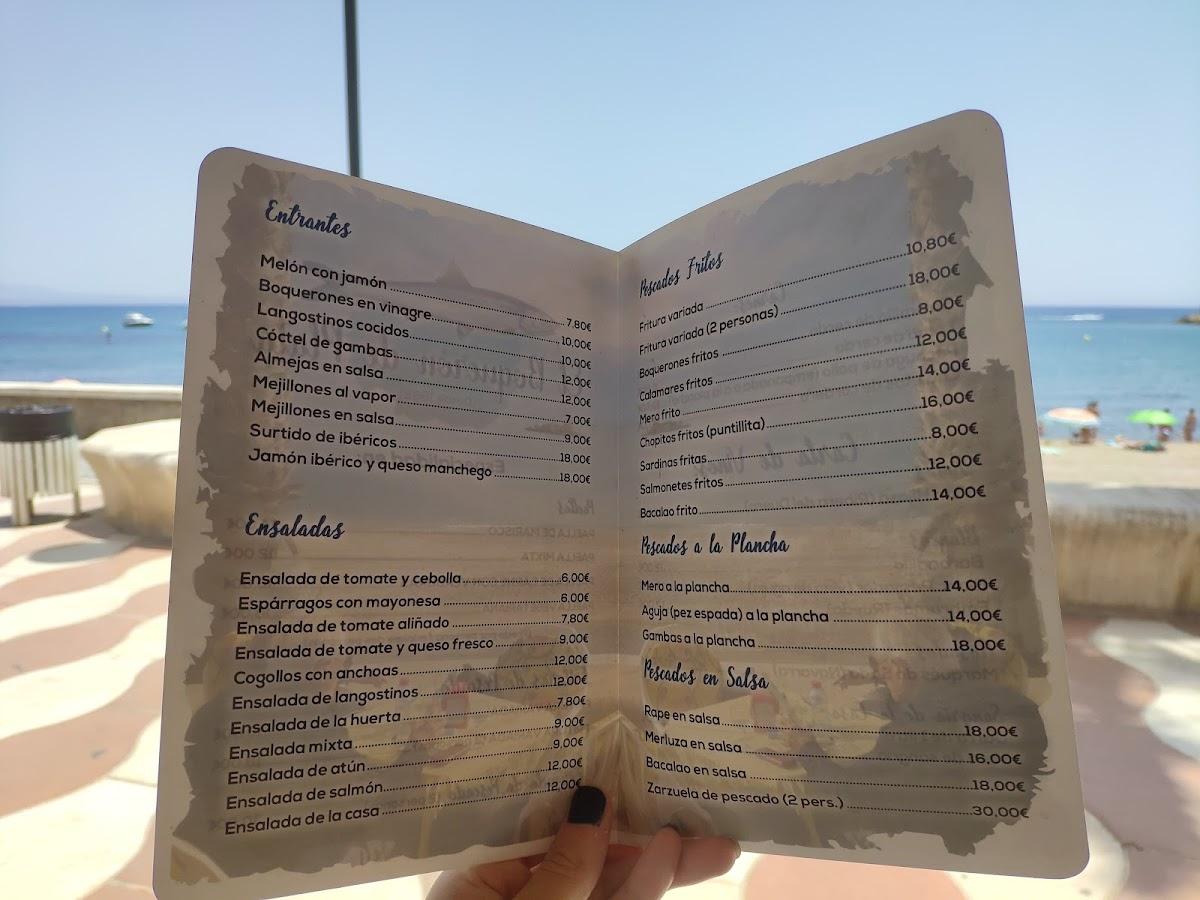 Entrantes
Melón con jamón 7,80€
Boquerones en vinagre 10,00€
Langostinos cocidos 10,00€
Cóctel de gambas 12,00€
Almejas en salsa 12,00€
Mejillones al vapor 7,00€
Mejillones en salsa 9,00€
Surtido de ibéricos 18,00€
Jamón ibérico y queso manchego 18,00€
Ensaladas
Ensalada de tomate y cebolla 6,00€
Espárragos con mayonesa 6,00€
Ensalada de tomate aliñado 7,80€
Ensalada de tomate y queso fresco 9,00€
Cogollos con anchoas 12,00€
Ensalada de langostinos 12,00€
Ensalada de la huerta 7,80€
Ensalada mixta 9,00€
Ensalada de atún 9,00€
Ensalada de salmón 12,00€
Ensalada de la casa 12,00€
Pescados Fritos
Fritura variada 10,80€
Fritura variada (2 personas) 18,00€
Boquerones fritos 8,00€
Calamares fritos 12,00€
Mero frito 14,00€
Chopitos fritos (puntillita) 16,00€
Sardinas fritas 8,00€
Salmonetes fritos 12,00€
Bacalao frito 14,00€
Pescados a la Plancha
Mero a la plancha 14,00€
Aguja (pez espada) a la plancha 14,00€
Gambas a la plancha 18,00€
Pescados en Salsa
Rape en salsa 18,00€
Merluza en salsa 16,00€
Bacalao en salsa 18,00€
Zarzuela de pescado (2 pers.) 30,00€